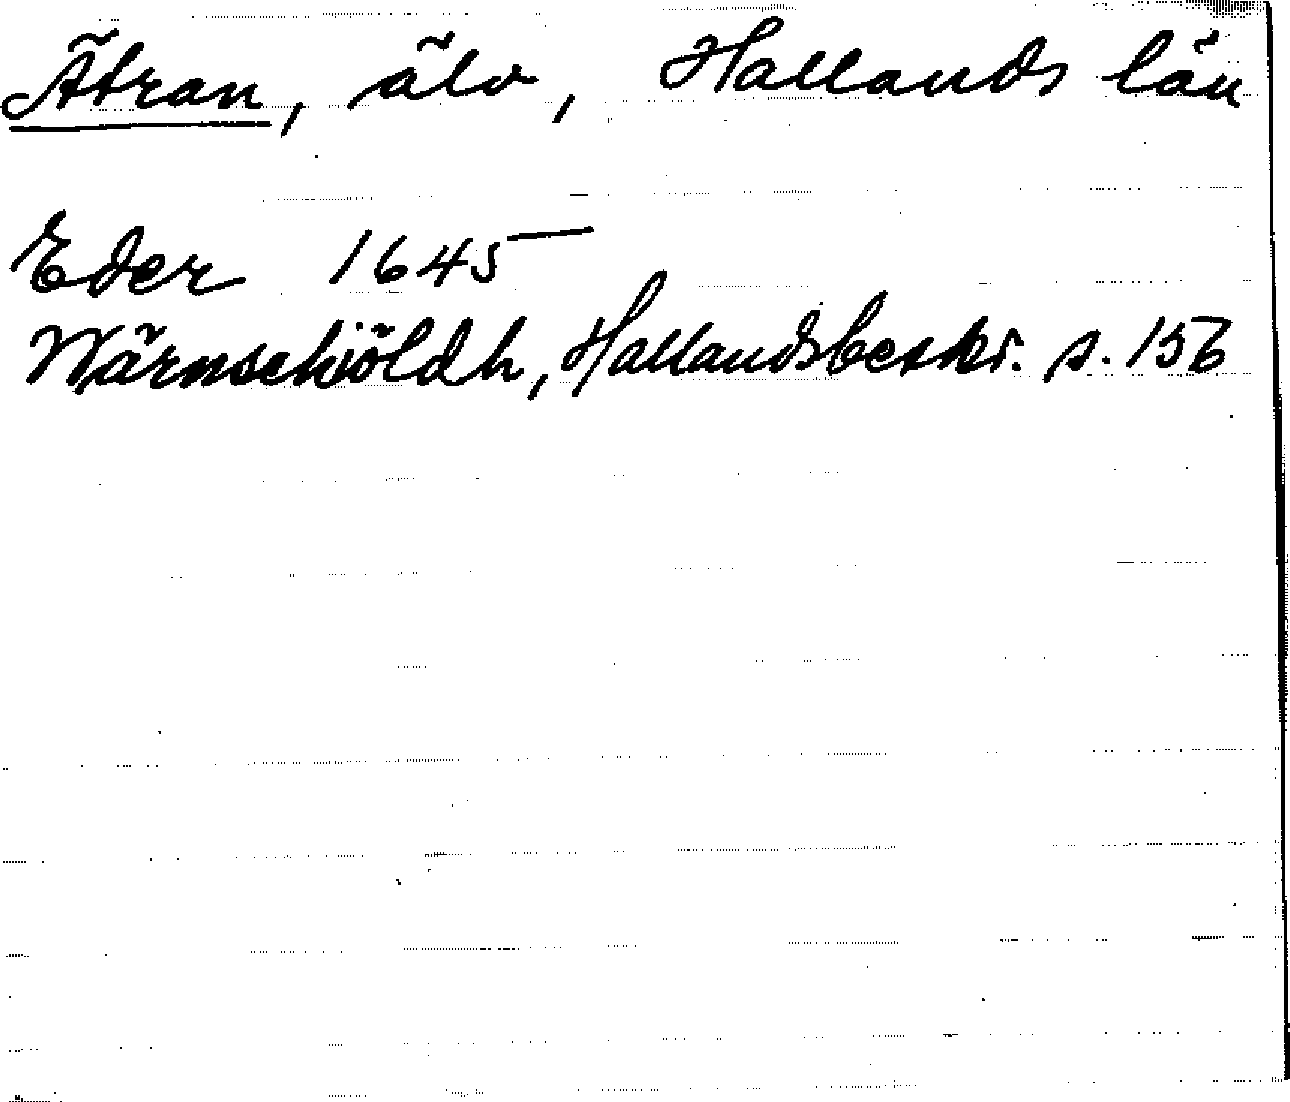 Ätran, älv, Hallands län
Eder 1645
Wärnschiöldh, Hallandsbeskr. s. 156